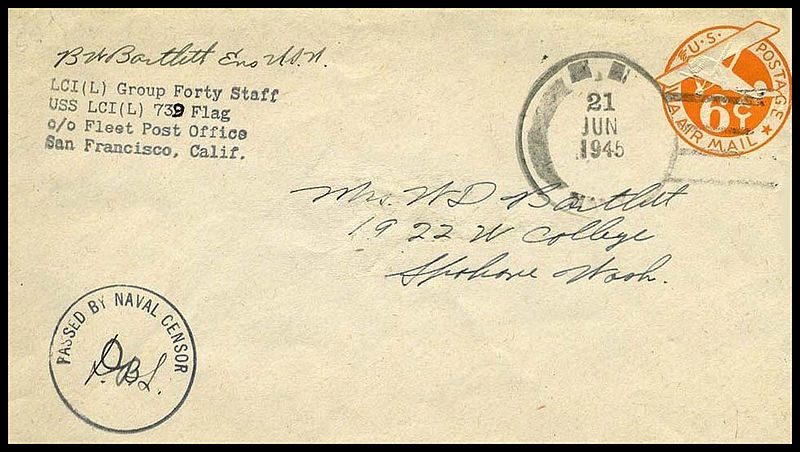 B W Bartlett Ens U.S.N.
LCI(L) Group Forty Staff
USS LCI(L) 739 Flag
c/o Fleet Post Office
San Francisco, Calif.
21
JUN
1945
U.S. POSTAGE
6¢
VIA AIR MAIL
Mrs. W D Bartlett
1922 W College
Spokane Wash.
PASSED BY NAVAL CENSOR